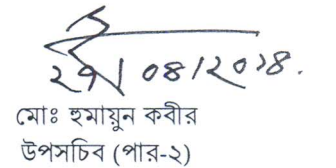 ২৭/০৪/২০১৪.
মোঃ হুমায়ুন কবীর
উপসচিব (পার-২)